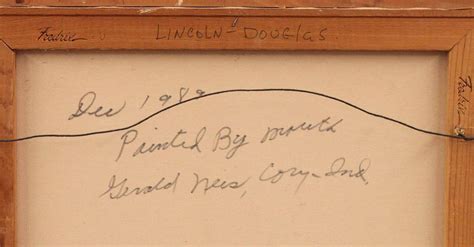 Fredrix LINCOLN-DOUGLAS
Fredrix
Dec 1989
Painted By mouth
Gerald Nees, Cory-Ind,